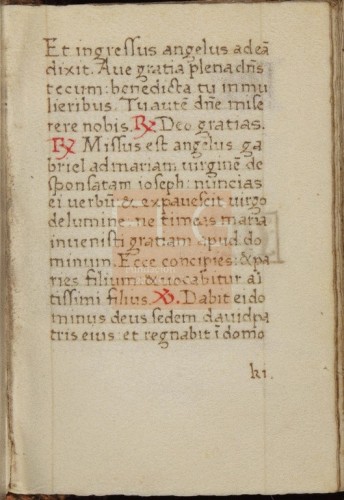 Et ingressus angelus ad eā
dixit. Aue gratia plena dn̄s
tecum: benedicta tu in mu
lieribus. Tu autē dn̄e mise
rere nobis. ℟ Deo gratias.
℟ Missus est angelus ga
briel ad mariam uirginē de
sponsatam ioseph: nuncias
ei uerbū: & expauescit uirgo
de lumine: ne timeas maria
inuenisti gratiam apud do
minum. Ecce concipies: & pa
ries filium & uocabitur al
tissimi filius. ℣ Dabit ei do
minus deus sedem dauid pa
tris eius: et regnabit ī domo